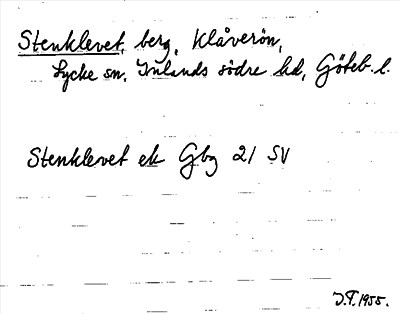 Stenklevet, berg, Klåverön,
Lycke sn. Inlands södre hd, Göteb. l.
Stenklevet ek Gbg 21 SV
J.T. 1955.